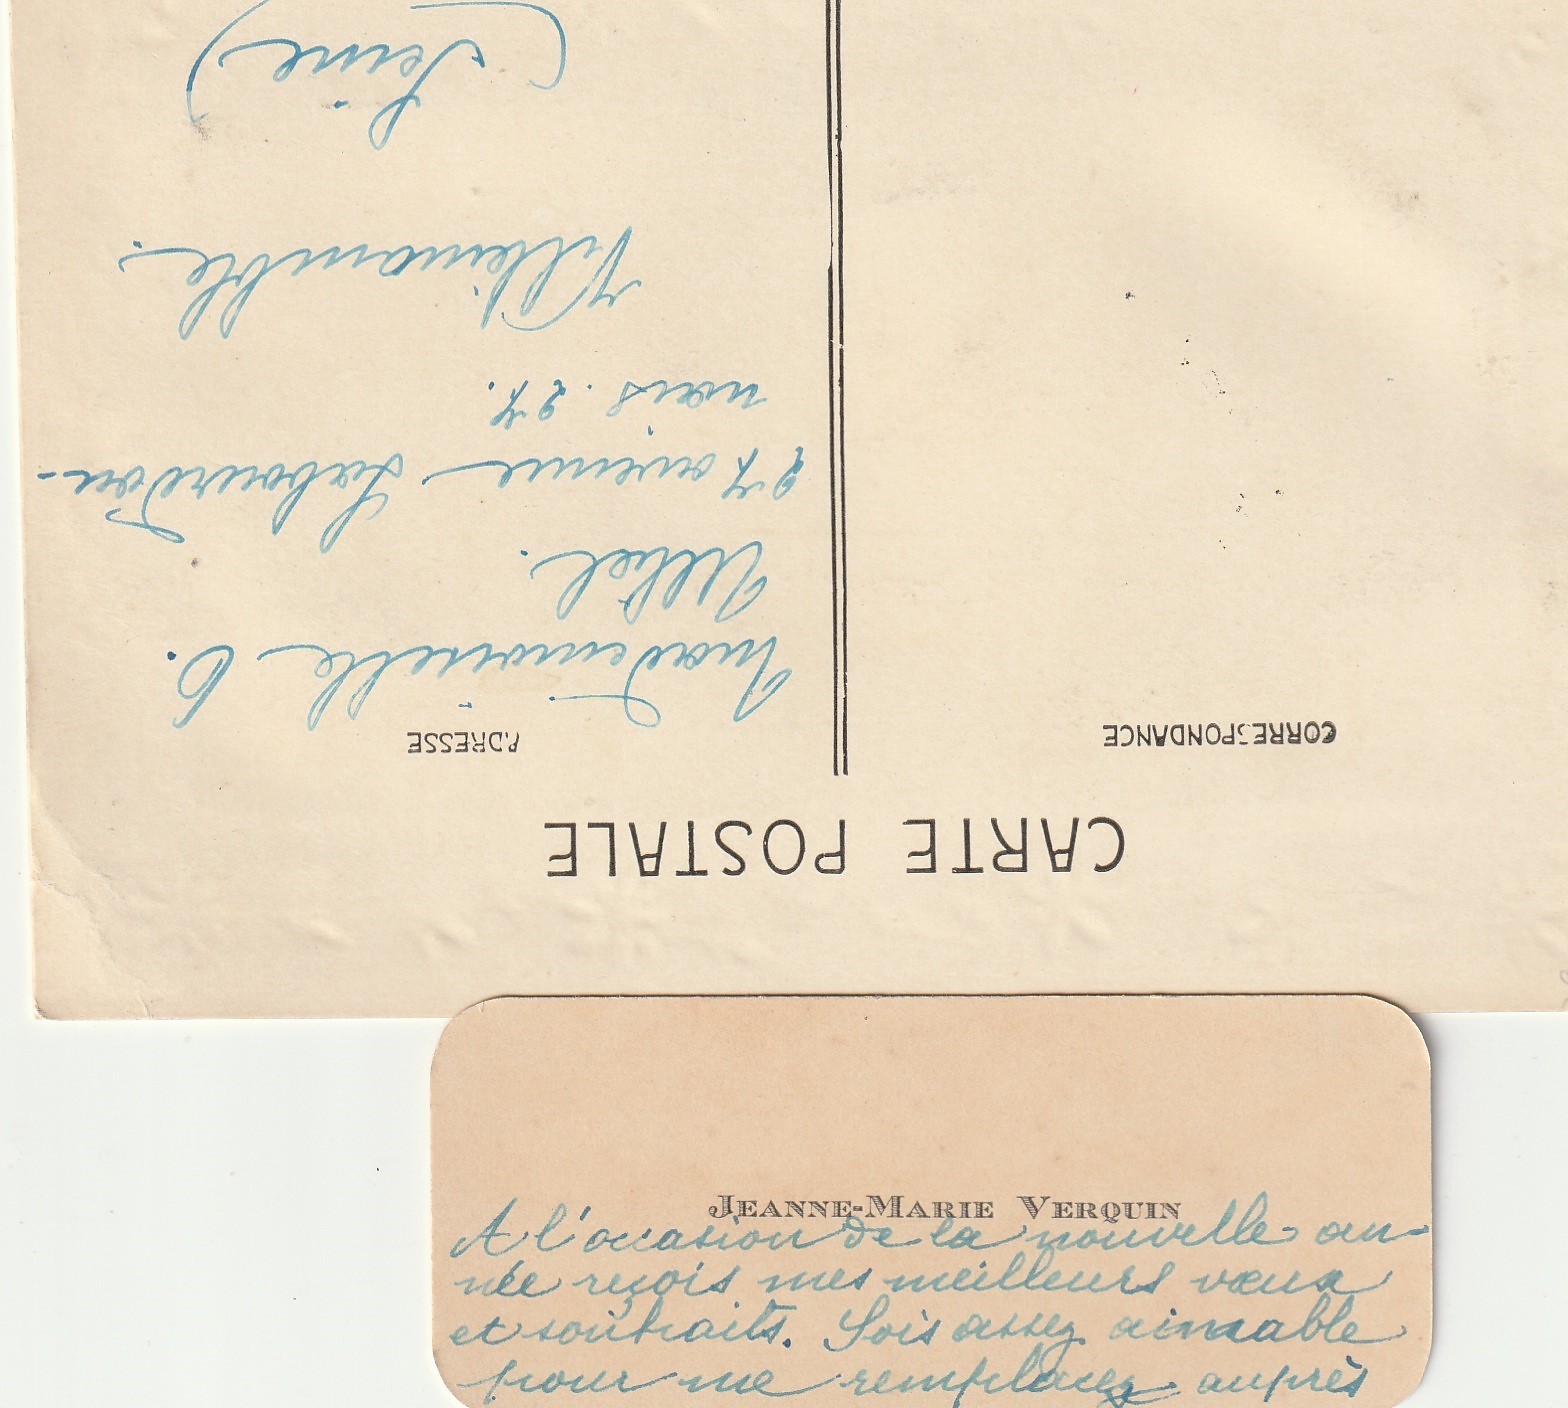 CARTE POSTALE
CORRESPONDANCE
ADRESSE
Mademoiselle O.
27 avenue Labourdon-
nais. 27.
Villemomble.
(Seine)
JEANNE-MARIE VERQUIN
A l'occasion de la nouvelle an-
née reçois mes meilleurs vœux
et souhaits. Sois assez aimable
pour me remplacez auprès